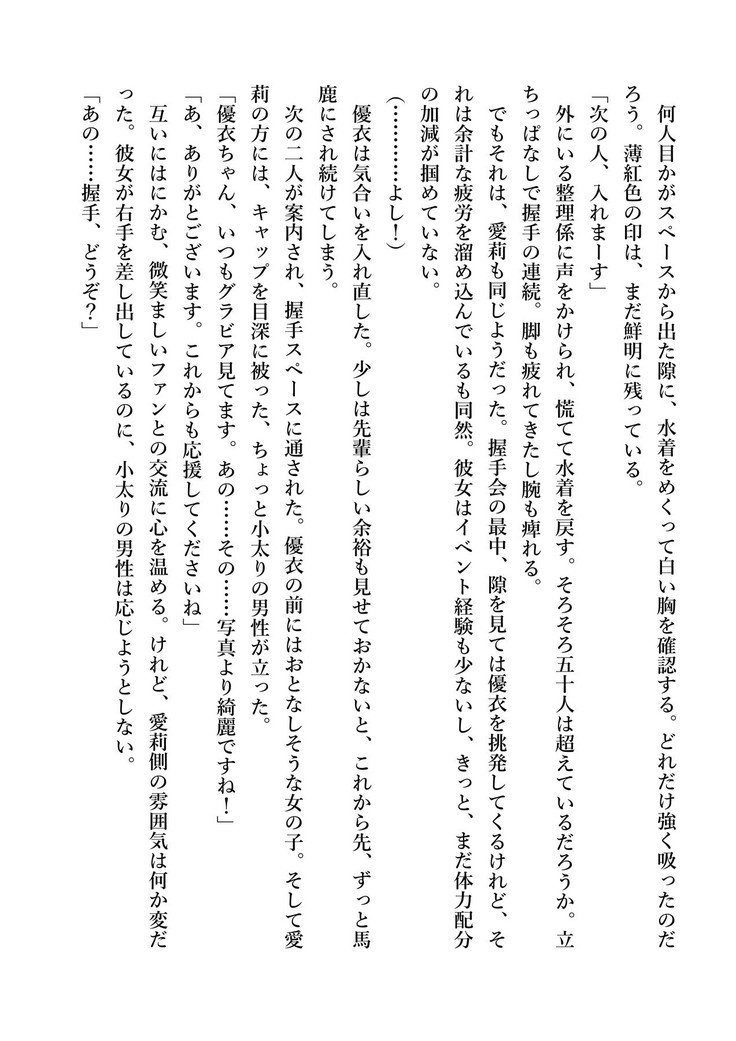 何人目かがスペースから出た隙に、水着をめくって白い胸を確認する。どれだけ強く吸ったのだ
ろう。薄紅色の印は、まだ鮮明に残っている。
「次の人、入れまーす」
外にいる整理係に声をかけられ、慌てて水着を戻す。そろそろ五十人は超えているだろうか。立
ちっぱなしで握手の連続。脚も疲れてきたし腕も痺れる。
でもそれは、愛莉も同じようだった。握手会の最中、隙を見ては優衣を挑発してくるけれど、そ
れは余計な疲労を溜め込んでいるも同然。彼女はイベント経験も少ないし、きっと、まだ体力配分
の加減が掴めていない。
(…………よし！)
優衣は気合いを入れ直した。少しは先輩らしい余裕も見せておかないと、これから先、ずっと馬
鹿にされ続けてしまう。
次の二人が案内され、握手スペースに通された。優衣の前にはおとなしそうな女の子。そして愛
莉の方には、キャップを目深に被った、ちょっと小太りの男性が立った。
「優衣ちゃん、いつもグラビア見てます。あの……その……写真より綺麗ですね！」
「あ、ありがとございます。これからも応援してくださいね」
互いにはにかむ、微笑ましいファンとの交流に心を温める。けれど、愛莉側の雰囲気は何か変だ
った。彼女が右手を差し出しているのに、小太りの男性は応じようとしない。
「あの……握手、どうぞ？」